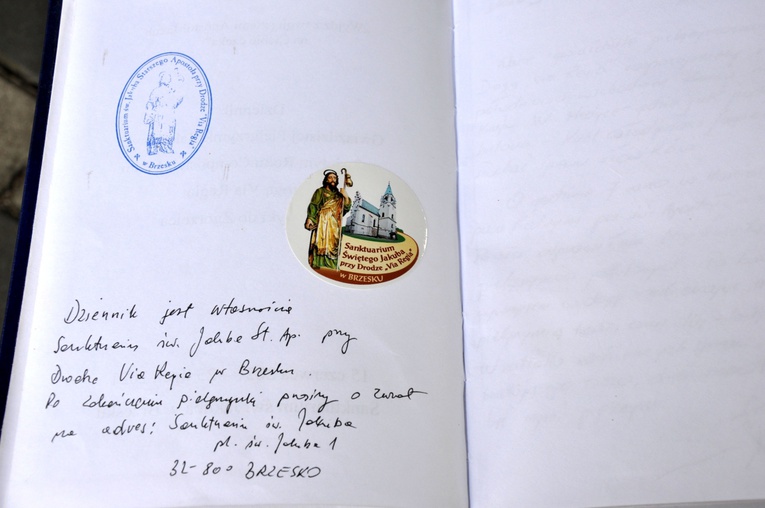 Sanktuarium św. Jakuba Starszego Apostoła przy Drodze Via Regia
w Brzesku
Sanktuarium
Świętego Jakuba
przy Drodze „Via Regia”
w BRZESKU
Dziennik jest własnością
Sanktuarium św. Jakuba St. Ap. przy
Drodze Via Regia w Brzesku.
Po zakończeniu pielgrzymki prosimy o zwrot
na adres: Sanktuarium św. Jakuba
pl. św. Jakuba 1
32-800 BRZESKO